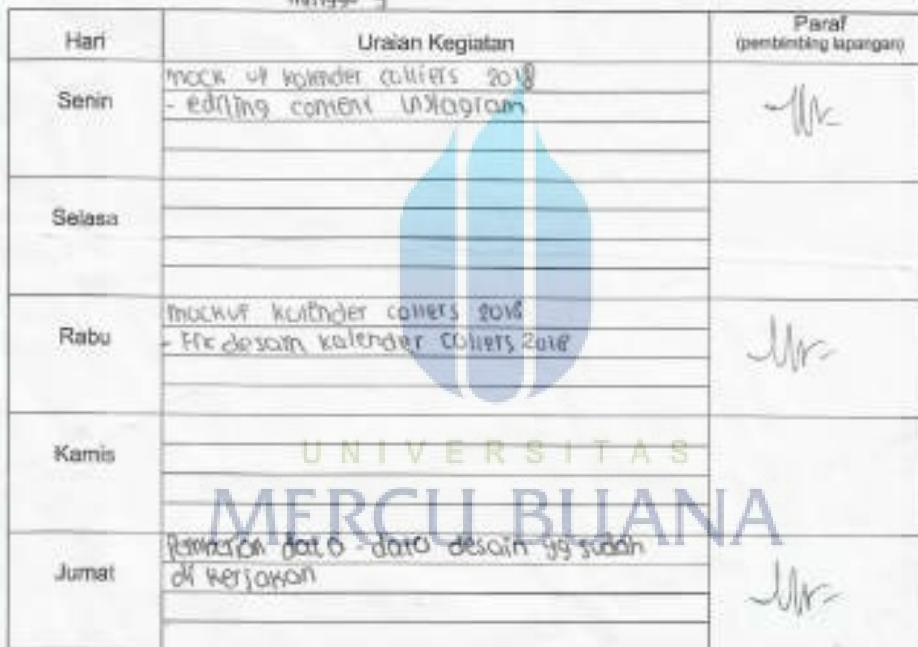 Minggu
Hari Uraian Kegiatan Paraf
(pembimbing lapangan)
Senin
mock up kalender colliers 2018
- editing content instagram
Selasa
Rabu
mockup kalender colliers 2018
- Fix desain kalender colliers 2018
Kamis
UNIVERSITAS
MERCU BUANA
Jumat
data - data desain yg sudah
di kerjakan